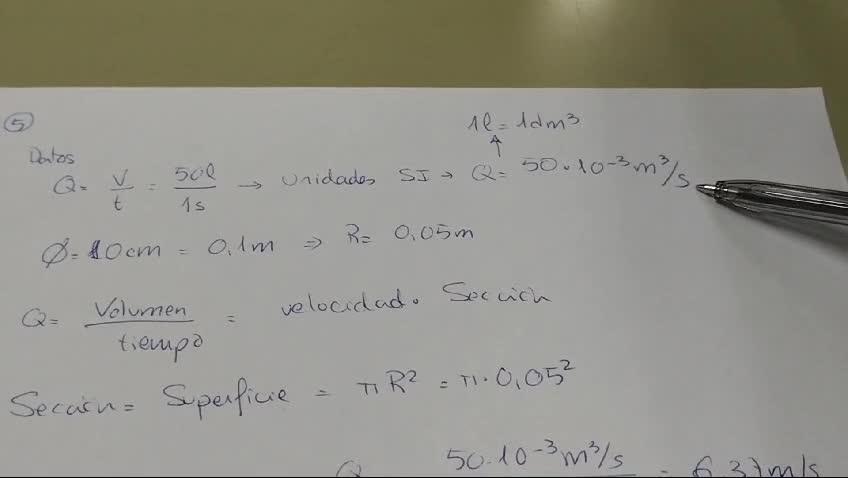 5
1l = 1dm³
Datos
Q = V/t = 50l/1s → Unidades SI → Q = 50·10⁻³ m³/s
Ø = 10cm = 0,1m ⇒ R = 0,05m
Q = Volumen/tiempo = velocidad · Sección
Sección = Superficie = πR² = π·0,05²
Q 50·10⁻³ m³/s = 6,37 m/s